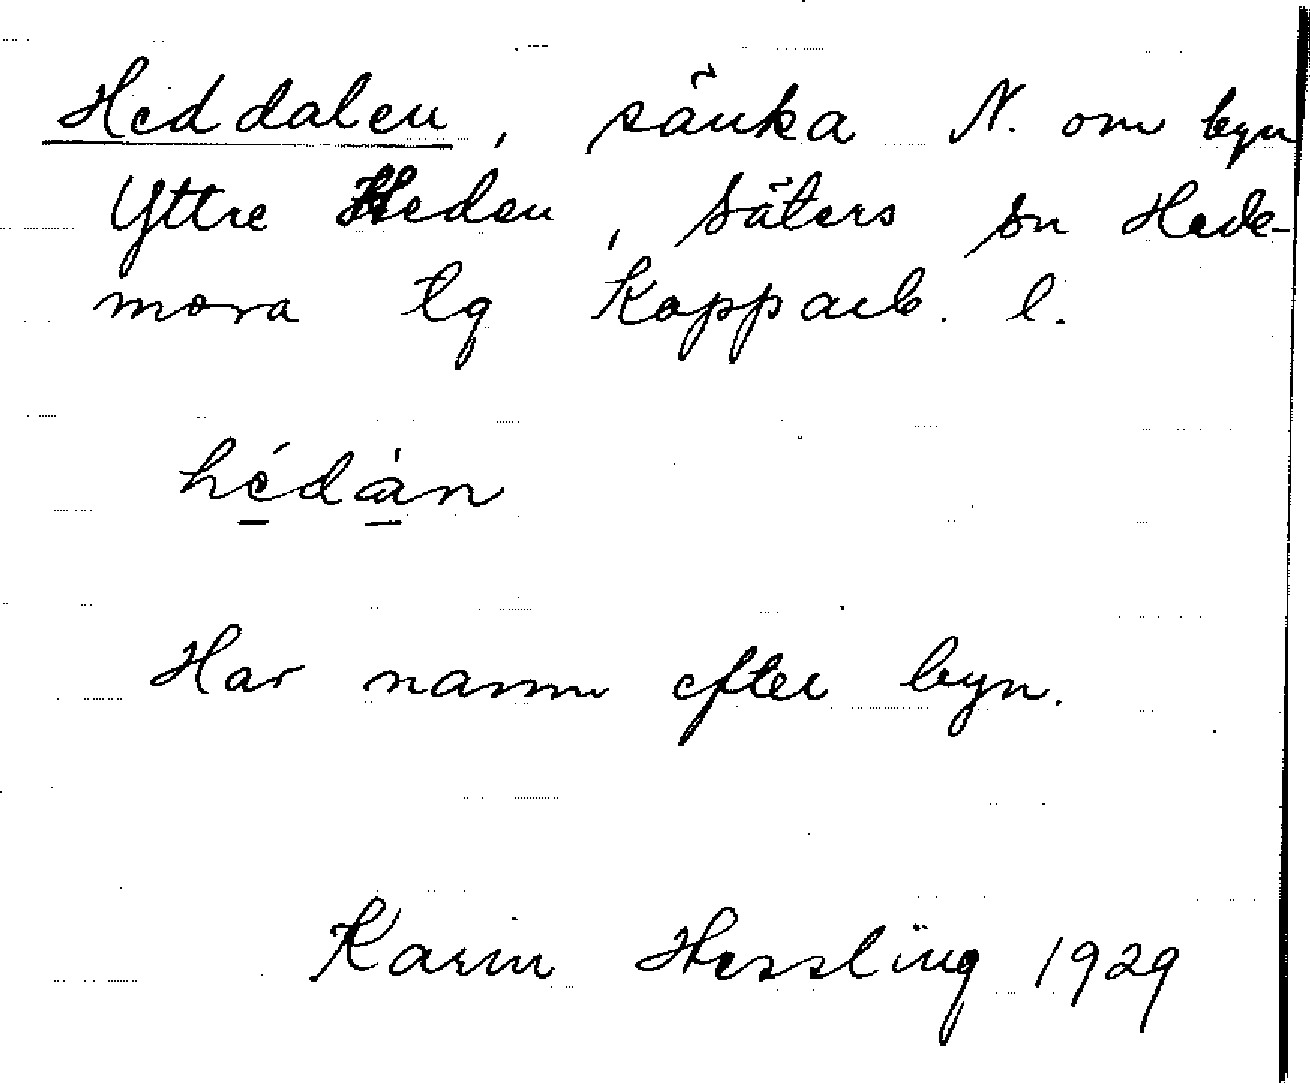 Heddalen, sänka N. om byn
Yttre Heden, Säters sn Hede-
mora tg Kopparb. l.
hédàn
Har namn efter byn.
Karin Hessling 1929